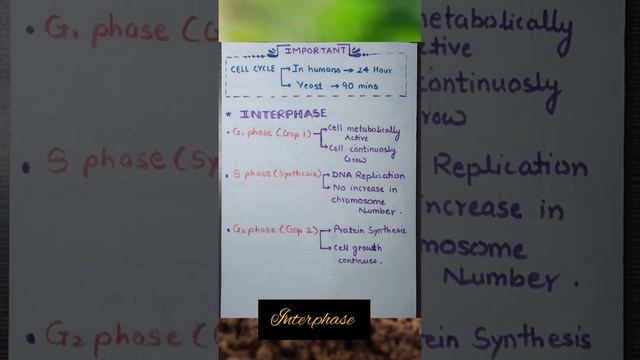 IMPORTANT
CELL CYCLE In humans → 24 Hour
Yeast → 90 mins
★ INTERPHASE
• G₁ phase (Gap 1) Cell metabolically
Active
Cell continously
Grow
• S phase (Synthesis) DNA Replication
No increase in
chromosome
Number.
• G₂ phase (Gap 2) Protein Synthesis
Cell growth
continues.
Interphase
G₁ phase (G
S phase (Sy
G₂ phase (
metabolically
ctive
continously
row
Replication
ncrease in
mosome
Number.
tein Synthesis